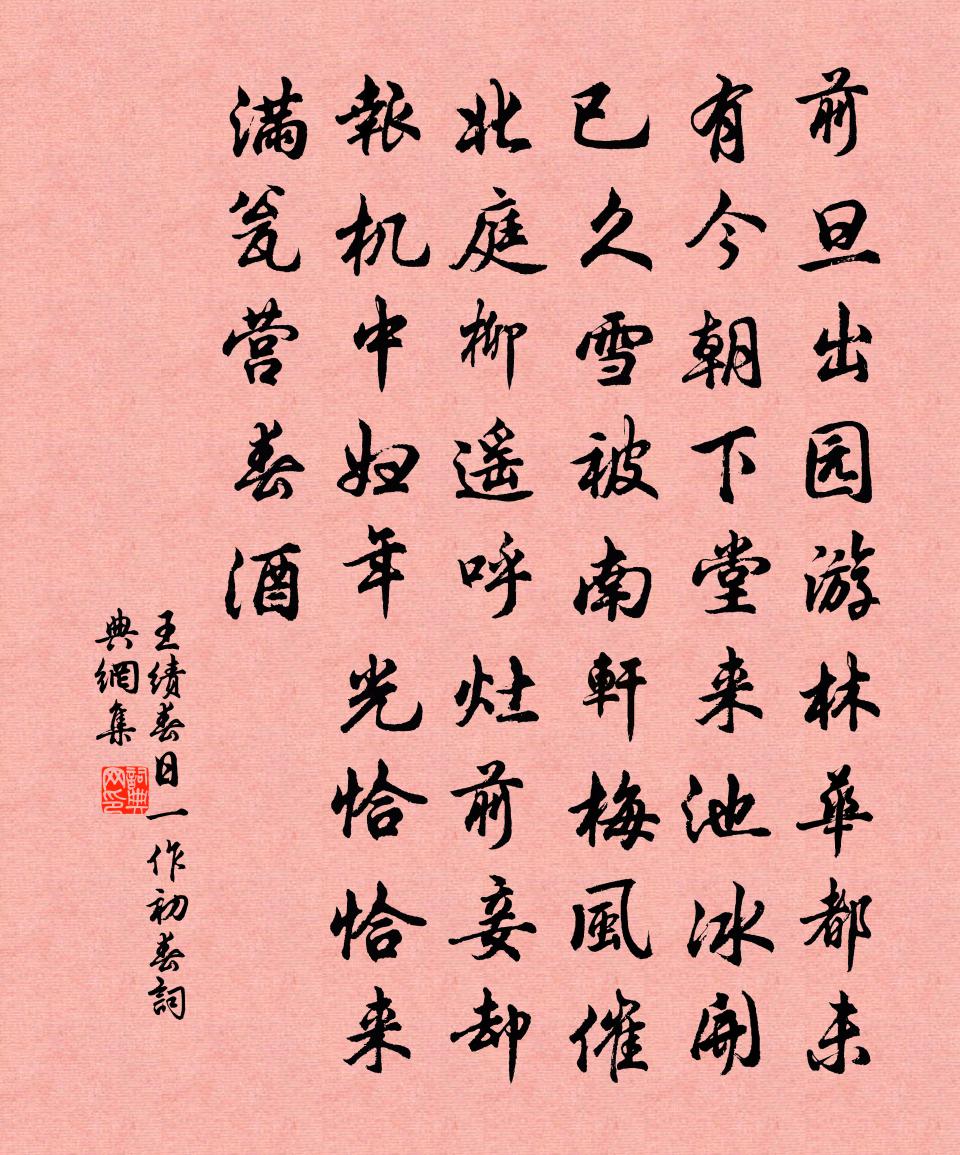 前旦出园游林華都未
有今朝下堂来池冰開
已久雪被南軒梅風催
北庭柳遥呼灶前妾却
報机中妇年光恰恰来
满瓮营春酒
王績春日一作初春詞
典網集
詞典網印